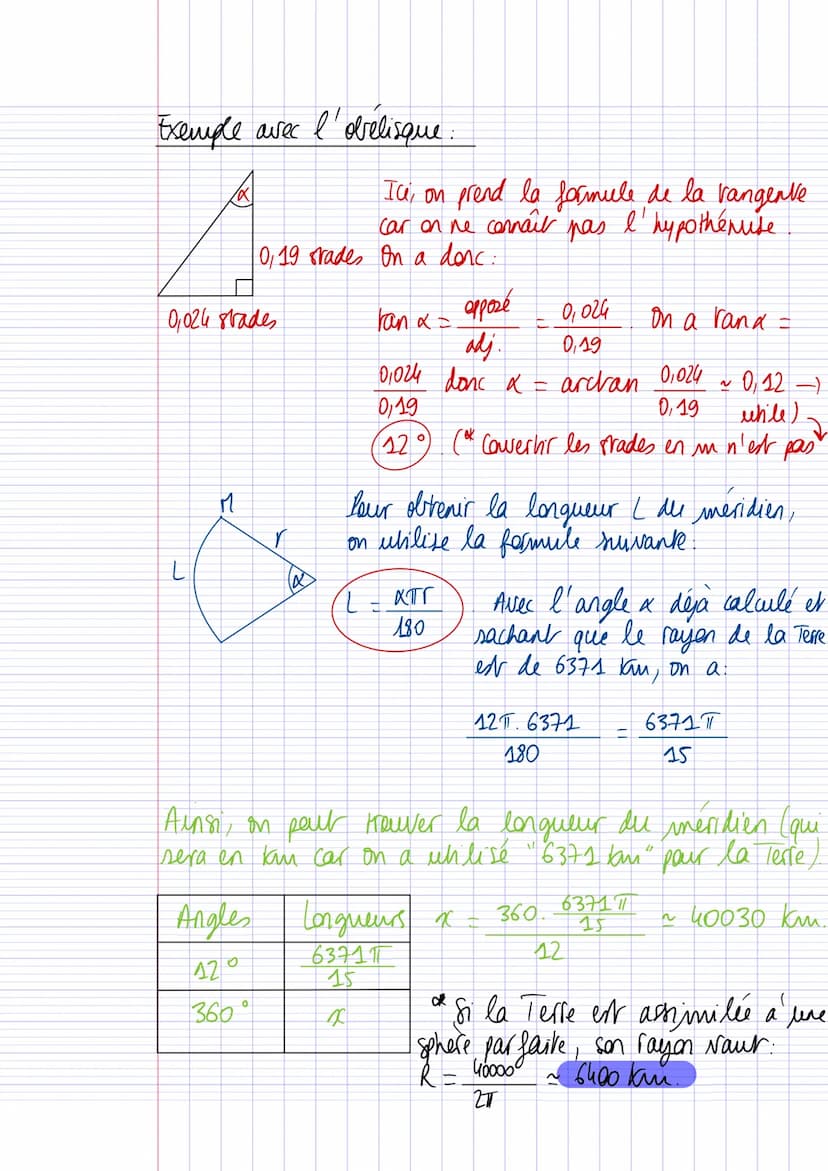 Exemple avec l'obélisque :
α
Ici, on prend la formule de la tangente
car on ne connaît pas l'hypothénuse.
0,19 stades
On a donc :
0,024 stades
tan α = opposé / adj. = 0,024 / 0,19 . On a tan α =
0,024 / 0,19 donc α = arctan 0,024 / 0,19 ≈ 0,12 →
utile)
12° . (* Convertir les stades en m n'est pas
M
r
L
α
Pour obtenir la longueur L du méridien,
on utilise la formule suivante :
L = απr / 180
Avec l'angle α déjà calculé et
sachant que le rayon de la Terre
est de 6371 km, on a :
12π . 6371 / 180 = 6371π / 15
Ainsi, on peut trouver la longueur du méridien (qui
sera en km car on a utilisé "6371 km" pour la Terre)
Angles Longueurs
12° 6371π / 15
360° x
x = 360 . 6371π / 15 / 12 ≈ 40030 km.
* Si la Terre est assimilée à une
sphère parfaite, son rayon vaut :
R = 40000 / 2π ≈ 6400 km.